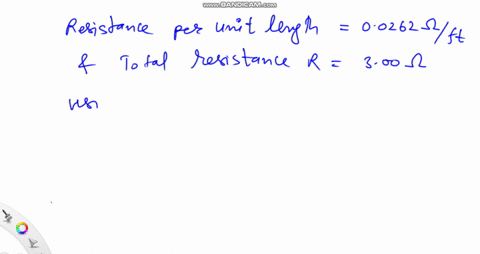 www.BANDICAM.com
Resistance per unit length = 0.0262 Ω/ft
& Total resistance R = 3.00 Ω
usi